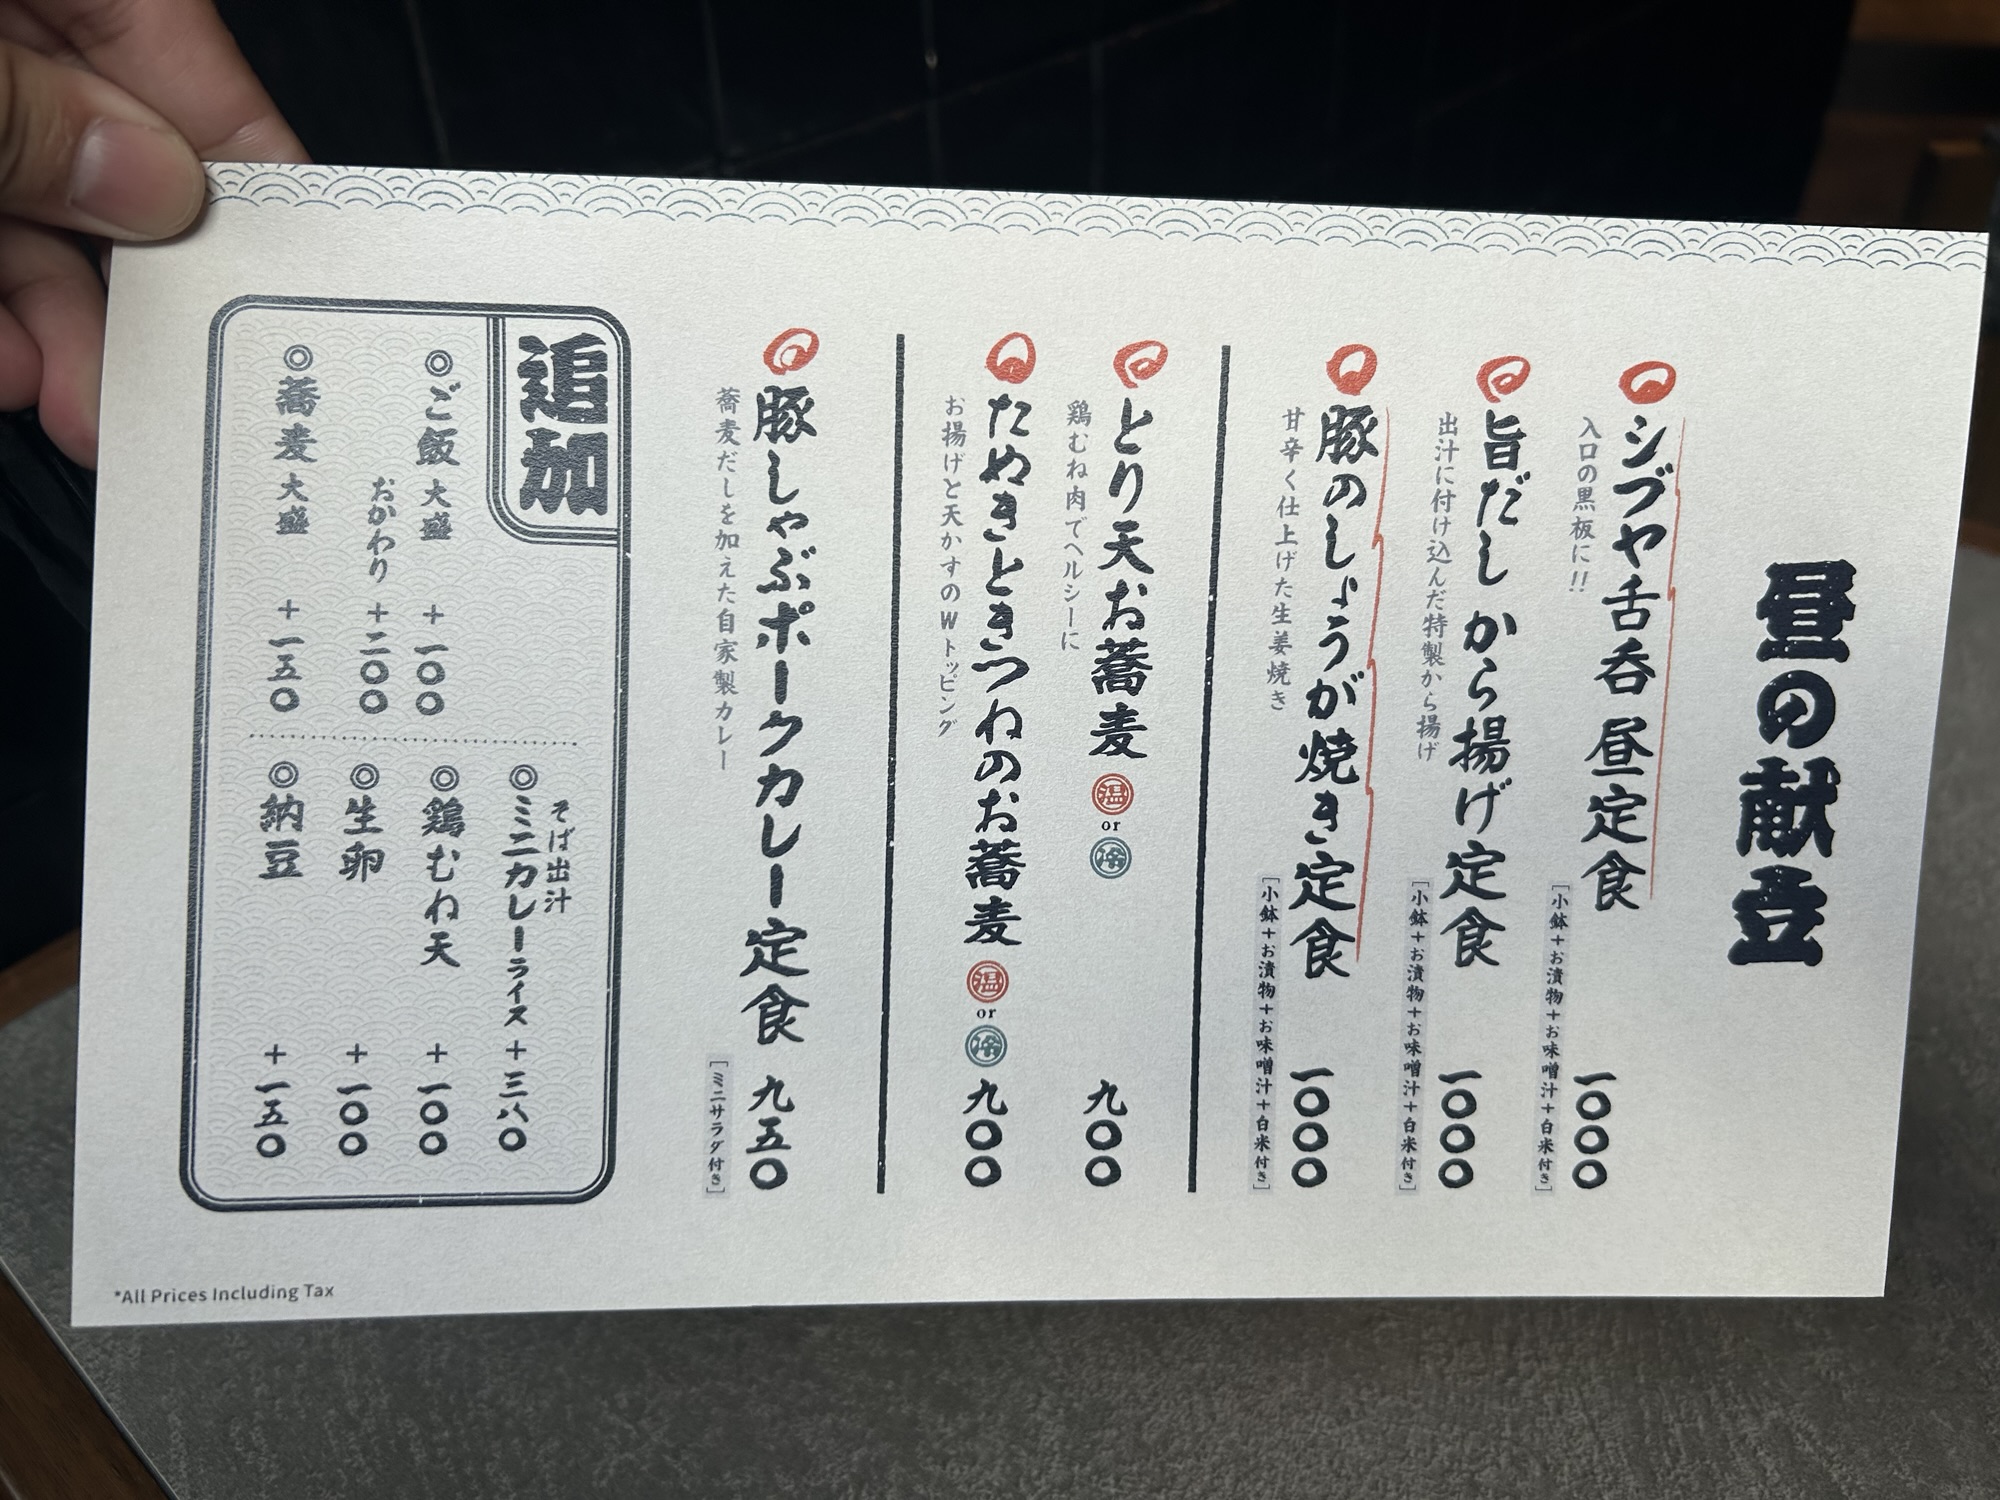 昼の献立
シブヤ舌呑 昼定食
一〇〇〇
入口の黒板に!!
[小鉢+お漬物+お味噌汁+白米付き]
旨だし から揚げ定食
一〇〇〇
出汁に付け込んだ特製から揚げ
[小鉢+お漬物+お味噌汁+白米付き]
豚のしょうが焼き定食
一〇〇〇
甘辛く仕上げた生姜焼き
[小鉢+お漬物+お味噌汁+白米付き]
とり天お蕎麦 温 or 冷
九〇〇
鶏むね肉でヘルシーに
たぬきときつねのお蕎麦 温 or 冷
九〇〇
お揚げと天かすのWトッピング
豚しゃぶポークカレー定食
九五〇
蕎麦だしを加えた自家製カレー
[ミニサラダ付き]
追加
◎ご飯 大盛 +一〇〇
おかわり +二〇〇
◎蕎麦 大盛 +一五〇
そば出汁
◎ミニカレーライス +三八〇
◎鶏むね天 +一〇〇
◎生卵 +一〇〇
◎納豆 +一五〇
*All Prices Including Tax